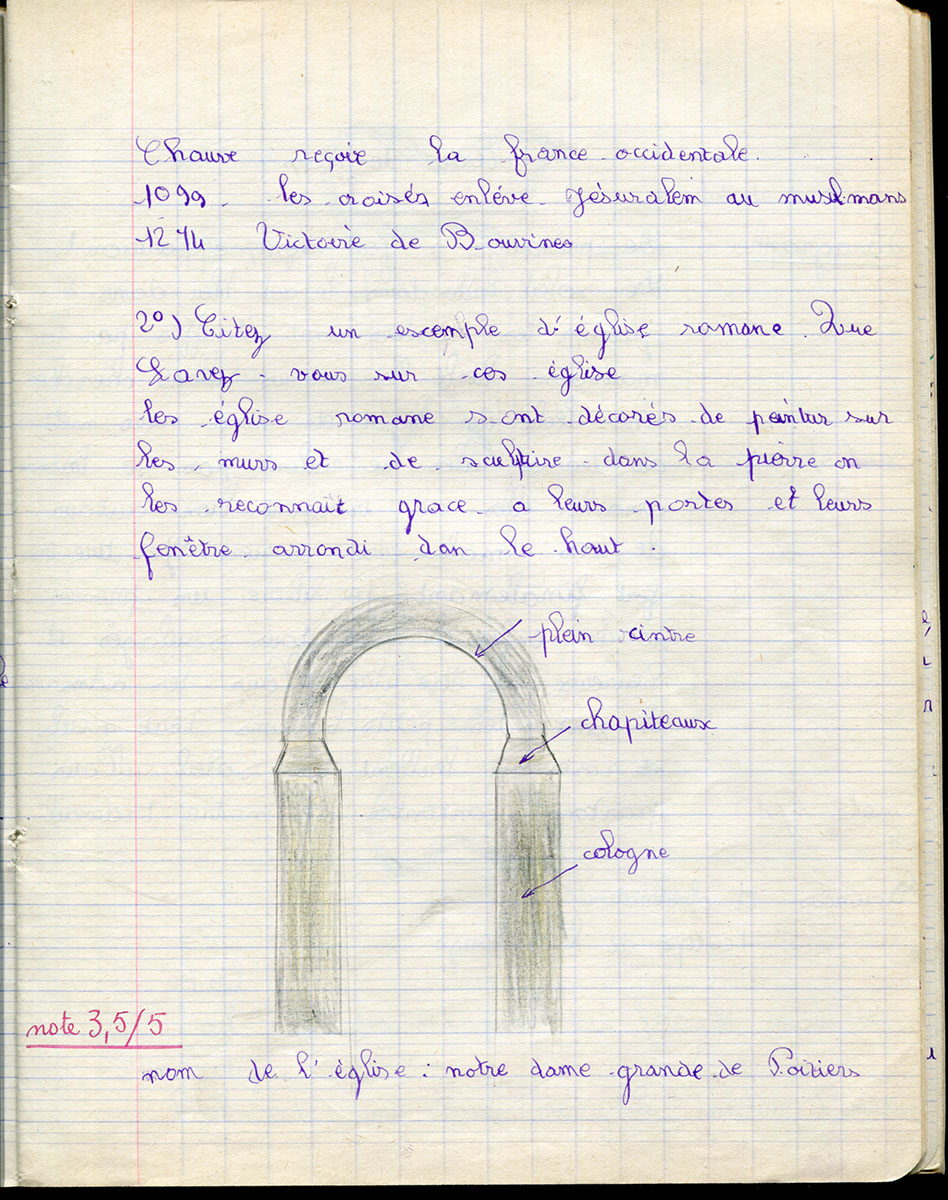 Chauve reçoie la france occidentale.
1099. les croisés enléve Jésuralem au muslmans
1214 Victoire de Bouvines
2°) Citez un escemple d'église romane. Que
Savez-vous sur ces église
les église romane sont décorés de peintur sur
les murs et de sculptire dans la pierre on
les reconnait grace a leurs portes et leurs
fenêtre arrondi dan le haut.
plein cintre
chapiteaux
cologne
note 3,5/5
nom de l'église : notre dame grande de Poitiers